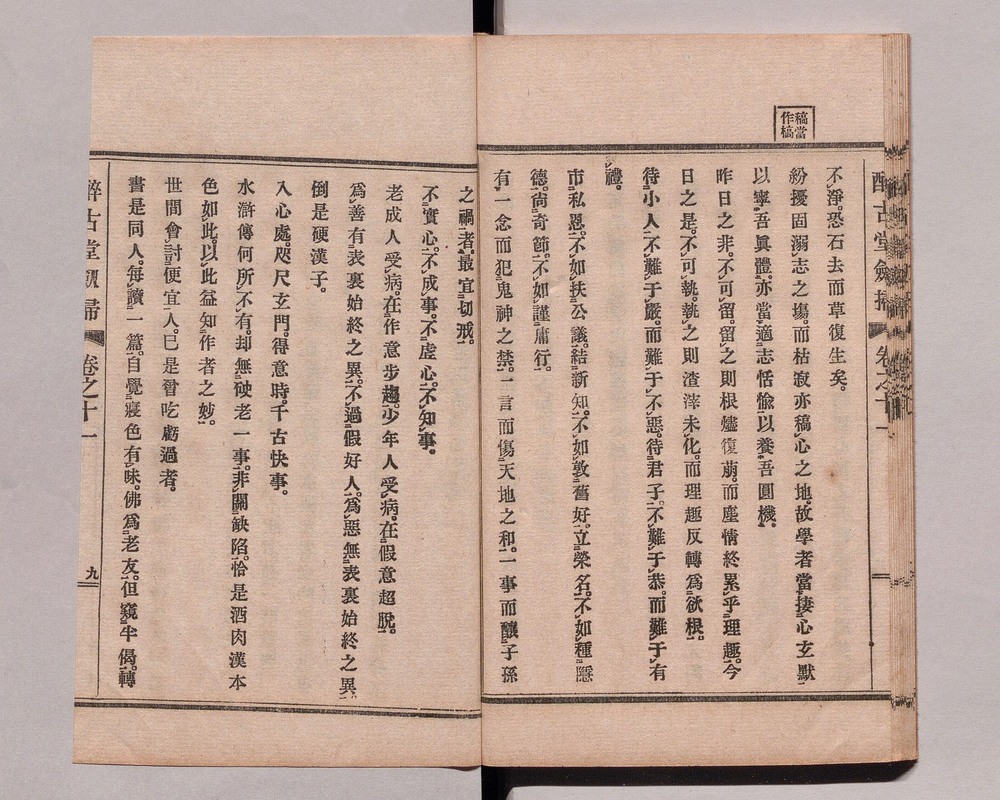 稿當
作槁
醉古堂劍掃 卷之十一
不淨。恐石去而草復生矣。
紛擾固溺志之場。而枯寂亦稿心之地。故學者當捿心玄默。
以寧吾眞體。亦當適志恬愉。以養吾圓機。
昨日之非。不可留。留之則根燼復萠。而塵情終累乎理趣。今
日之是。不可執。執之則渣滓未化。而理趣反轉爲欲根。
待小人。不難于嚴。而難于不惡。待君子。不難于恭。而難于有
禮。
市私恩。不如扶公議。結新知。不如敦舊好。立榮名。不如種隱
德。尙奇節。不如謹庸行。
有一念而犯鬼神之禁。一言而傷天地之和。一事而釀子孫
之禍者。最宜切戒。
不實心。不成事。不虛心。不知事。
老成人受病。在作意步趨。少年人受病。在假意超脫。
爲善有表裏始終之異。不過假好人。爲惡無表裏始終之異。
倒是硬漢子。
入心處。咫尺玄門。得意時。千古快事。
水滸傳何所不有。却無破老一事。非關缺陷。恰是酒肉漢本
色如此。以此益知作者之妙。
世間會討便宜人。巳是曾吃虧過者。
書是同人。每讀一篇。自覺寢色有味。佛爲老友。但窺半偈。轉
醉古堂劍掃 卷之十一 九